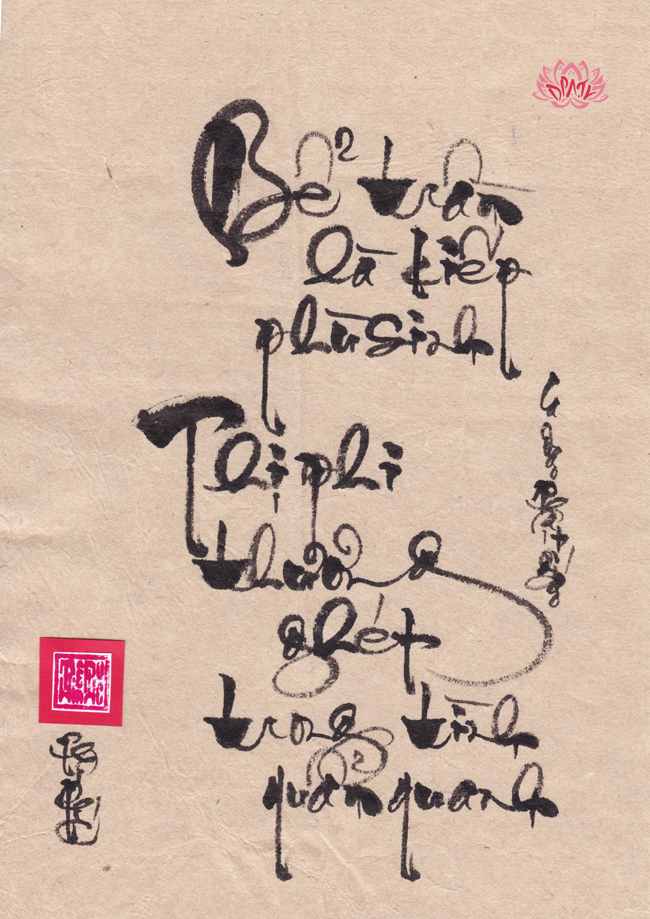 DPATK
Bể trần
là kiếp
phù sinh
Thị phi
thương
ghét
trong tình
quẩn quanh